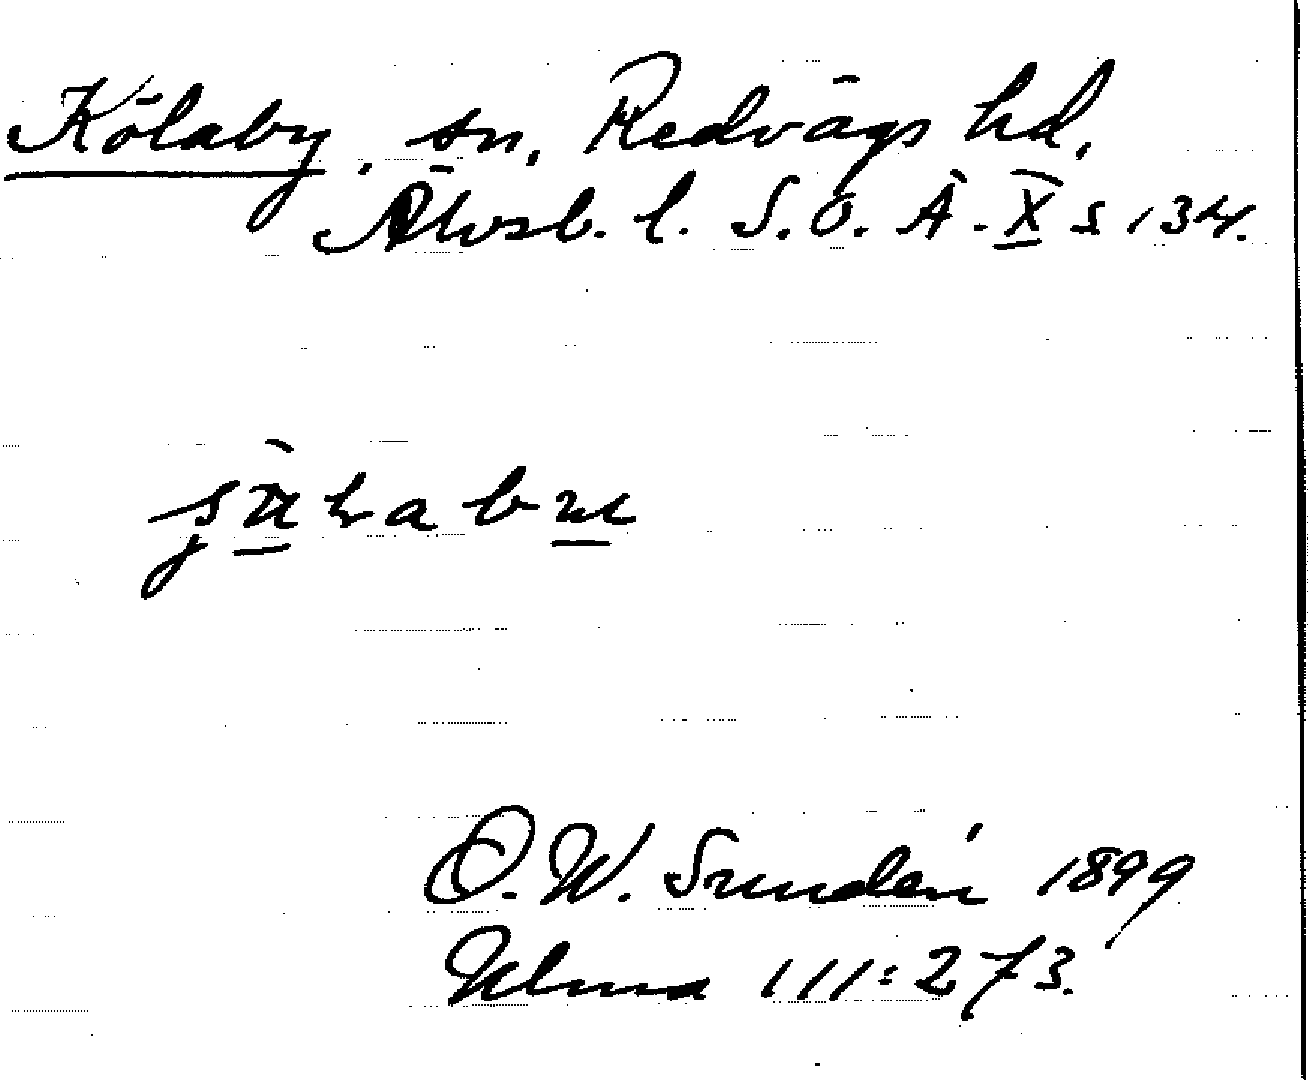 Kölaby, sn, Redvägs hd,
Älvsb. l. S.O.Ä. X s 134.
O. W. Sundén 1899
Ulma 111:273.